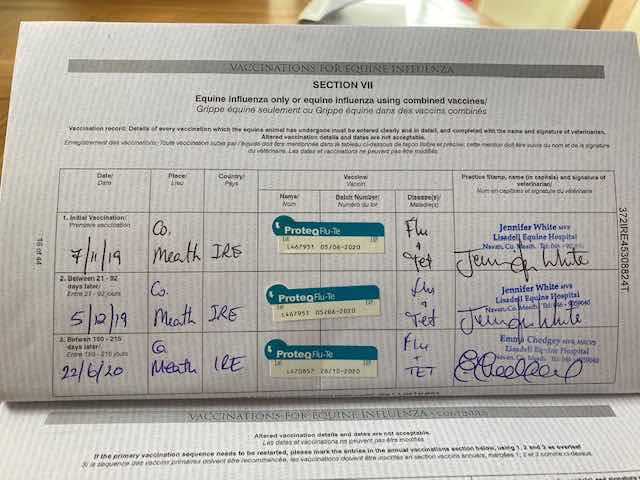 VACCINATIONS FOR EQUINE INFLUENZA
SECTION VII
Equine influenza only or equine influenza using combined vaccines/
Grippe équine seulement ou Grippe équine dans des vaccins combinés
Vaccination record: Details of every vaccination which the equine animal has undergone must be entered clearly and in detail, and completed with the name and signature of veterinarian.
Altered vaccination details and dates are not acceptable.
Enregistrement des vaccinations: Toute vaccination subie par l'équidé doit être mentionnée dans le tableau ci-dessous de façon lisible et précise; cette mention doit être suivie du nom et de la signature
du vétérinaire. Les dates et vaccinations ne peuvent pas être modifiés.
Date/ Place/ Country/ Vaccine/ Practice Stamp, name (in capitals) and signature of
Date Lieu Pays Vaccin veterinarian/
Name/ Batch Number/ Disease(s)/ Nom en capitales et signature du vétérinaire
Nom Numéro du lot Maladie(s)
1. Initial Vaccination/
Première vaccination
7/11/19 Co. Meath IRE
ProteqFlu-Te
Lot L467951 05/06-2020
Flu + Tet
Jennifer White MVB
Lisadell Equine Hospital
Navan, Co. Meath. Tel: 046
Jennifer White
2. Between 21 - 92
days later/
Entre 21 - 92 jours
5/12/19 Co. Meath IRE
ProteqFlu-Te
L467951 05/06-2020
Flu + Tet
Jennifer White MVB
Lisadell Equine Hospital
Navan, Co. Meath. Tel: 046
Jennifer White
3. Between 150 - 215
days later/
Entre 150 - 215 jours
22/6/20 Co Meath IRE
ProteqFlu-Te
L470857 26/10-2020
Flu + TET
Emma Chedgey MVB, MRCVS
Lisadell Equine Hospital
Navan, Co. Meath. Tel: 046
16 of 44
VACCINATIONS FOR EQUINE INFLUENZA - continued
Altered vaccination details and dates are not acceptable.
Les dates et vaccinations ne peuvent pas être modifiés
If the primary vaccination sequence needs to be restarted, please mark the entries in the annual vaccinations section below, using 1, 2 and 3 as overleaf